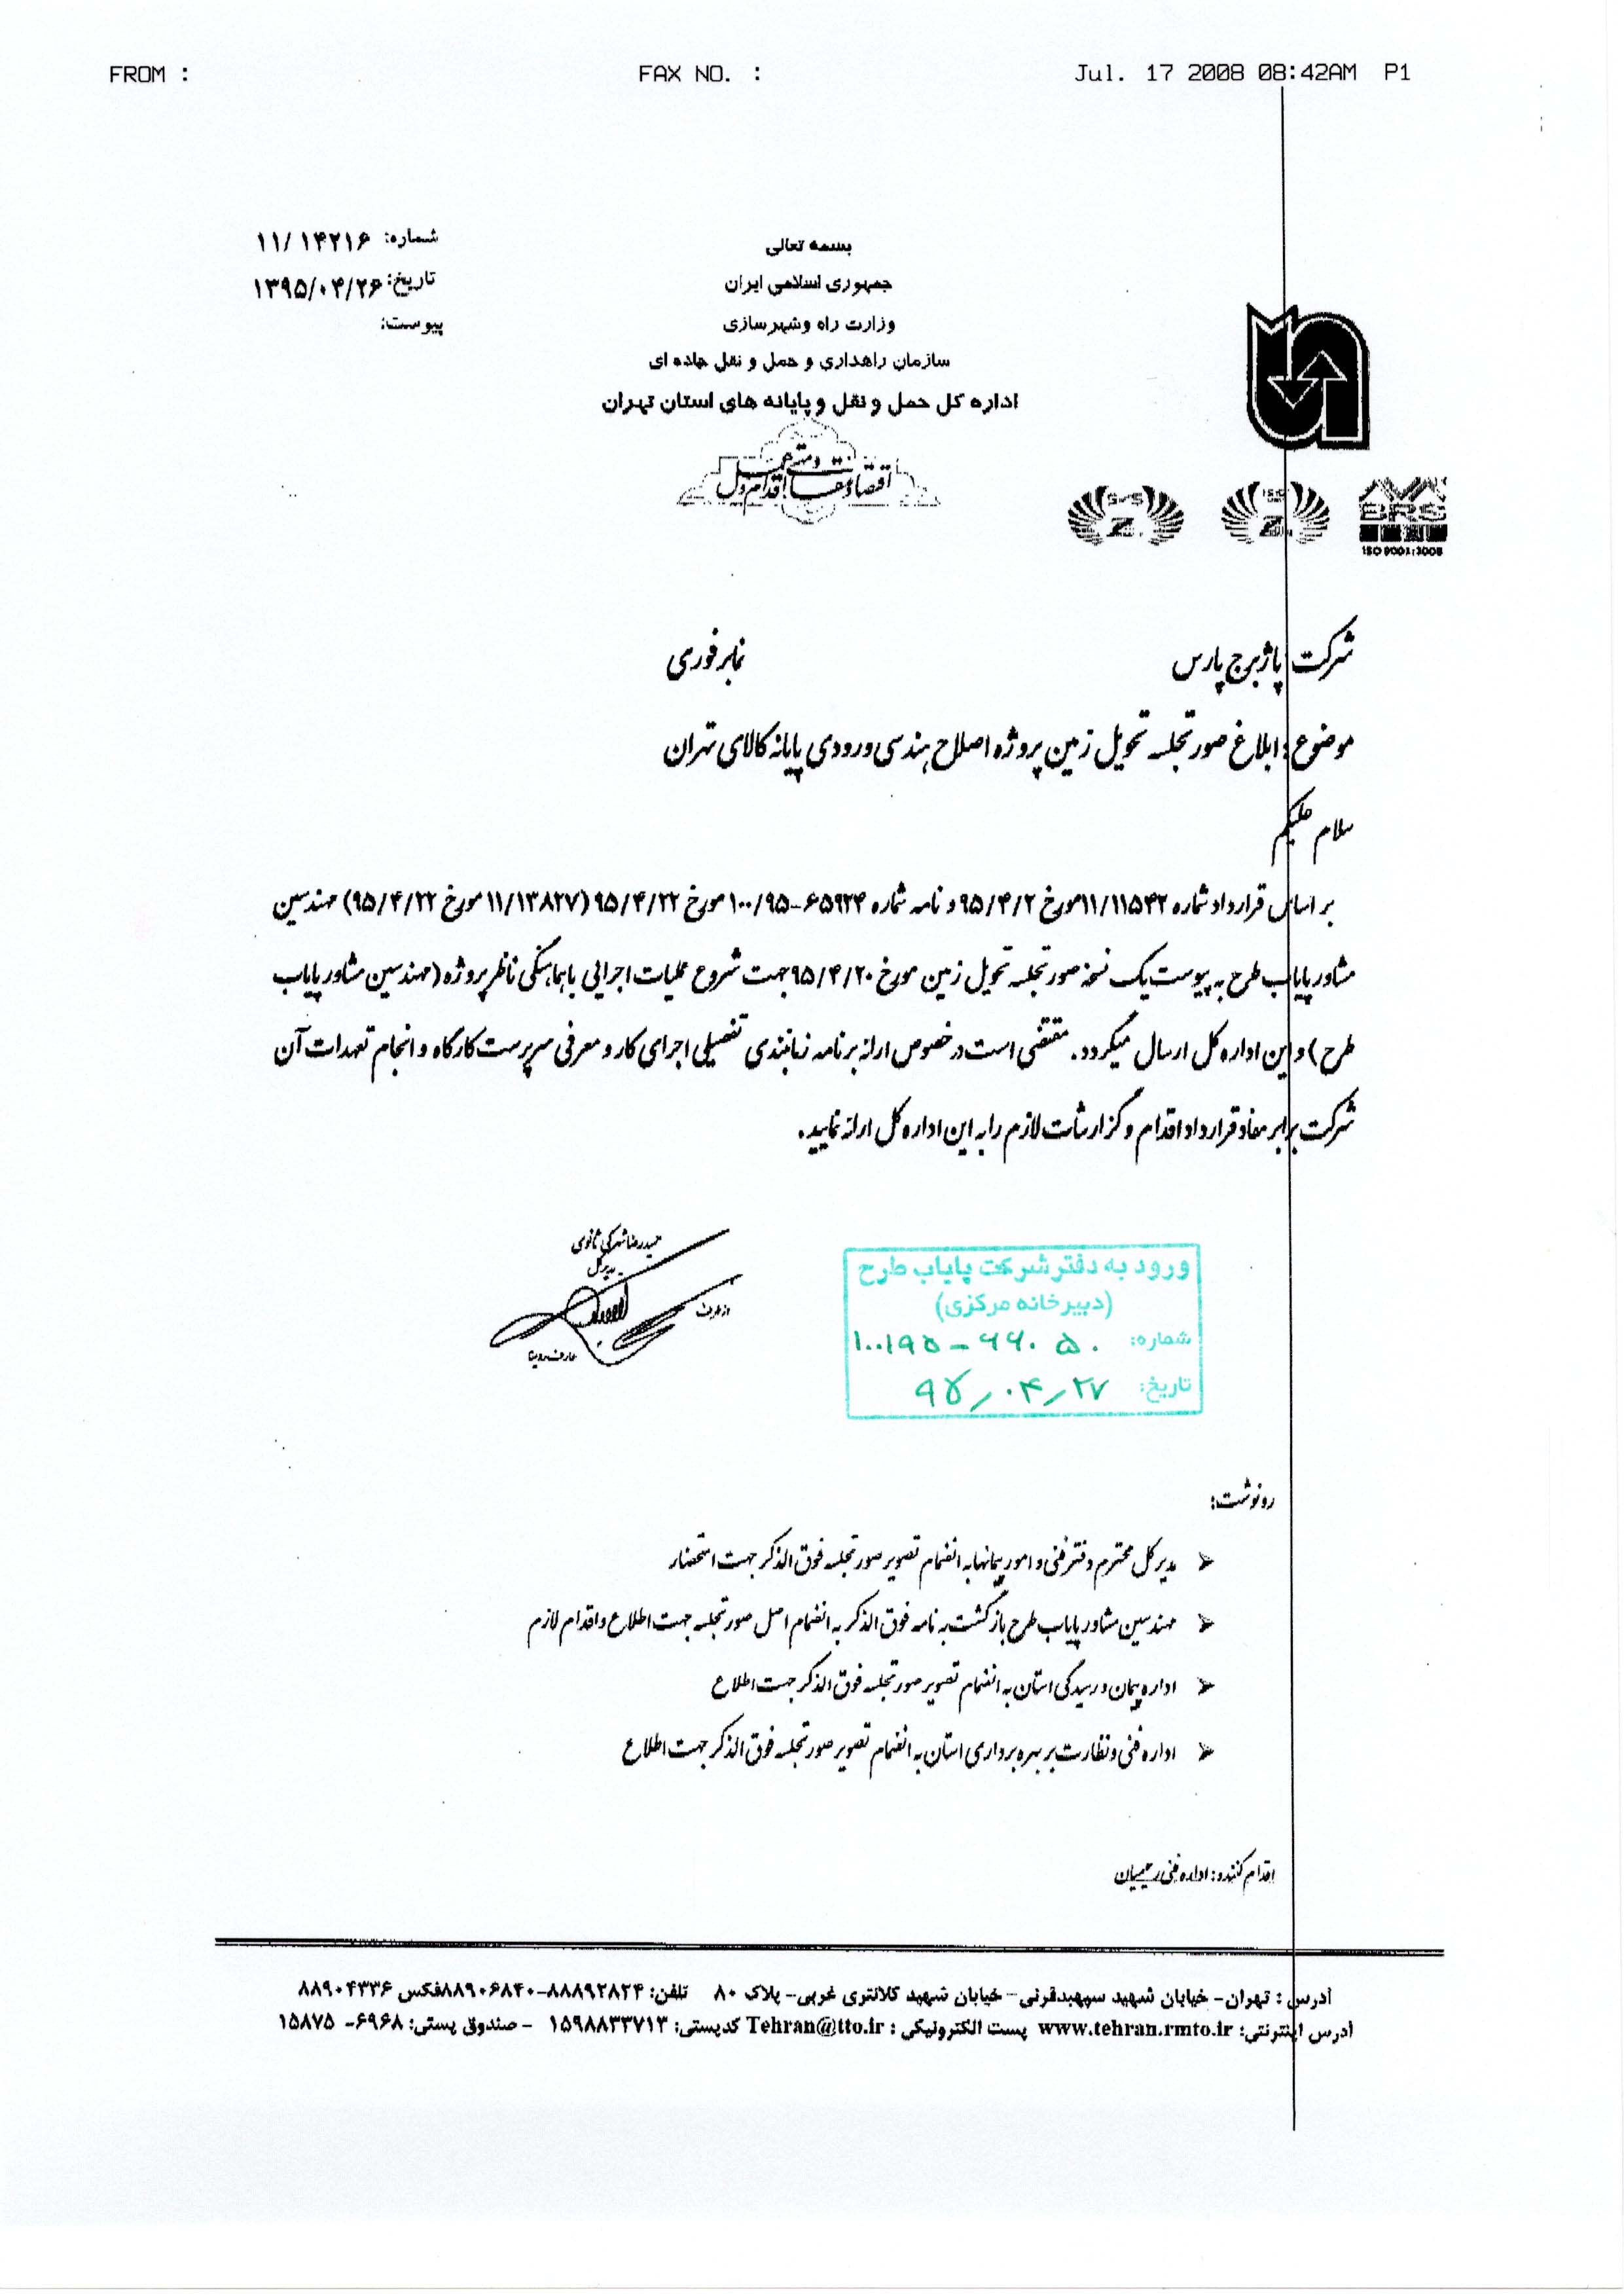 FROM :
FAX NO. :
Jul. 17 2008 08:42AM P1
شماره: ۱۱/۱۴۲۱۶
تاریخ: ۱۳۹۵/۰۴/۲۶
پیوست:
بسمه تعالی
جمهوری اسلامی ایران
وزارت راه وشهرسازی
سازمان راهداری و حمل و نقل جاده ای
اداره کل حمل و نقل و پایانه های استان تهران
BRS
شرکت پاژ برج پارس
نمابر فوری
موضوع: ابلاغ صورتجلسه تحویل زمین پروژه اصلاح هندسی ورودی پایانه کالای تهران
سلام علیکم
بر اساس قرارداد شماره ۱۱/۱۱۵۴۲ مورخ ۹۵/۴/۲ و نامه شماره ۶۵۹۲۴-۱۰۰/۹۵ مورخ ۹۵/۴/۲۲ (۱۱/۱۳۸۲۷ مورخ ۹۵/۴/۲۲) مهندسین
مشاور پایاب طرح به پیوست یک نسخه صورتجلسه تحویل زمین مورخ ۹۵/۴/۲۰ جهت شروع عملیات اجرایی با هماهنگی ناظر پروژه (مهندسین مشاور پایاب
طرح) و این اداره کل ارسال میگردد. مقتضی است در خصوص ارائه برنامه زمانبندی تفصیلی اجرای کار و معرفی سرپرست کارگاه و انجام تعهدات آن
شرکت برابر مفاد قرارداد اقدام و گزارشات لازم را به این اداره کل ارائه نمایید.
مدیرکل
از طرف
ورود به دفتر شرکت پایاب طرح
(دبیرخانه مرکزی)
شماره: ۱۰۰/۹۵ - ۶۶۰۵۰
تاریخ: ۹۵/۰۴/۲۷
رونوشت:
مدیرکل محترم دفتر فنی و امور پیمانها به انضمام تصویر صورتجلسه فوق الذکر جهت استحضار
مهندسین مشاور پایاب طرح بازگشت به نامه فوق الذکر به انضمام اصل صورتجلسه جهت اطلاع و اقدام لازم
اداره پیمان و رسیدگی استان به انضمام تصویر صورتجلسه فوق الذکر جهت اطلاع
اداره فنی و نظارت بر بهره برداری استان به انضمام تصویر صورتجلسه فوق الذکر جهت اطلاع
اقدام کننده: اداره فنی رحیمیان
آدرس : تهران- خیابان شهید سپهبدقرنی- خیابان شهید کلانتری غربی- پلاک ۸۰ تلفن: ۸۸۸۹۲۸۲۴-۸۸۹۰۶۸۴۰فکس ۸۸۹۰۴۳۳۶
آدرس اینترنتی: www.tehran.rmto.ir پست الکترونیکی : Tehran@tto.ir کدپستی: ۱۵۹۸۸۳۳۷۱۳ - صندوق پستی: ۶۹۶۸- ۱۵۸۷۵